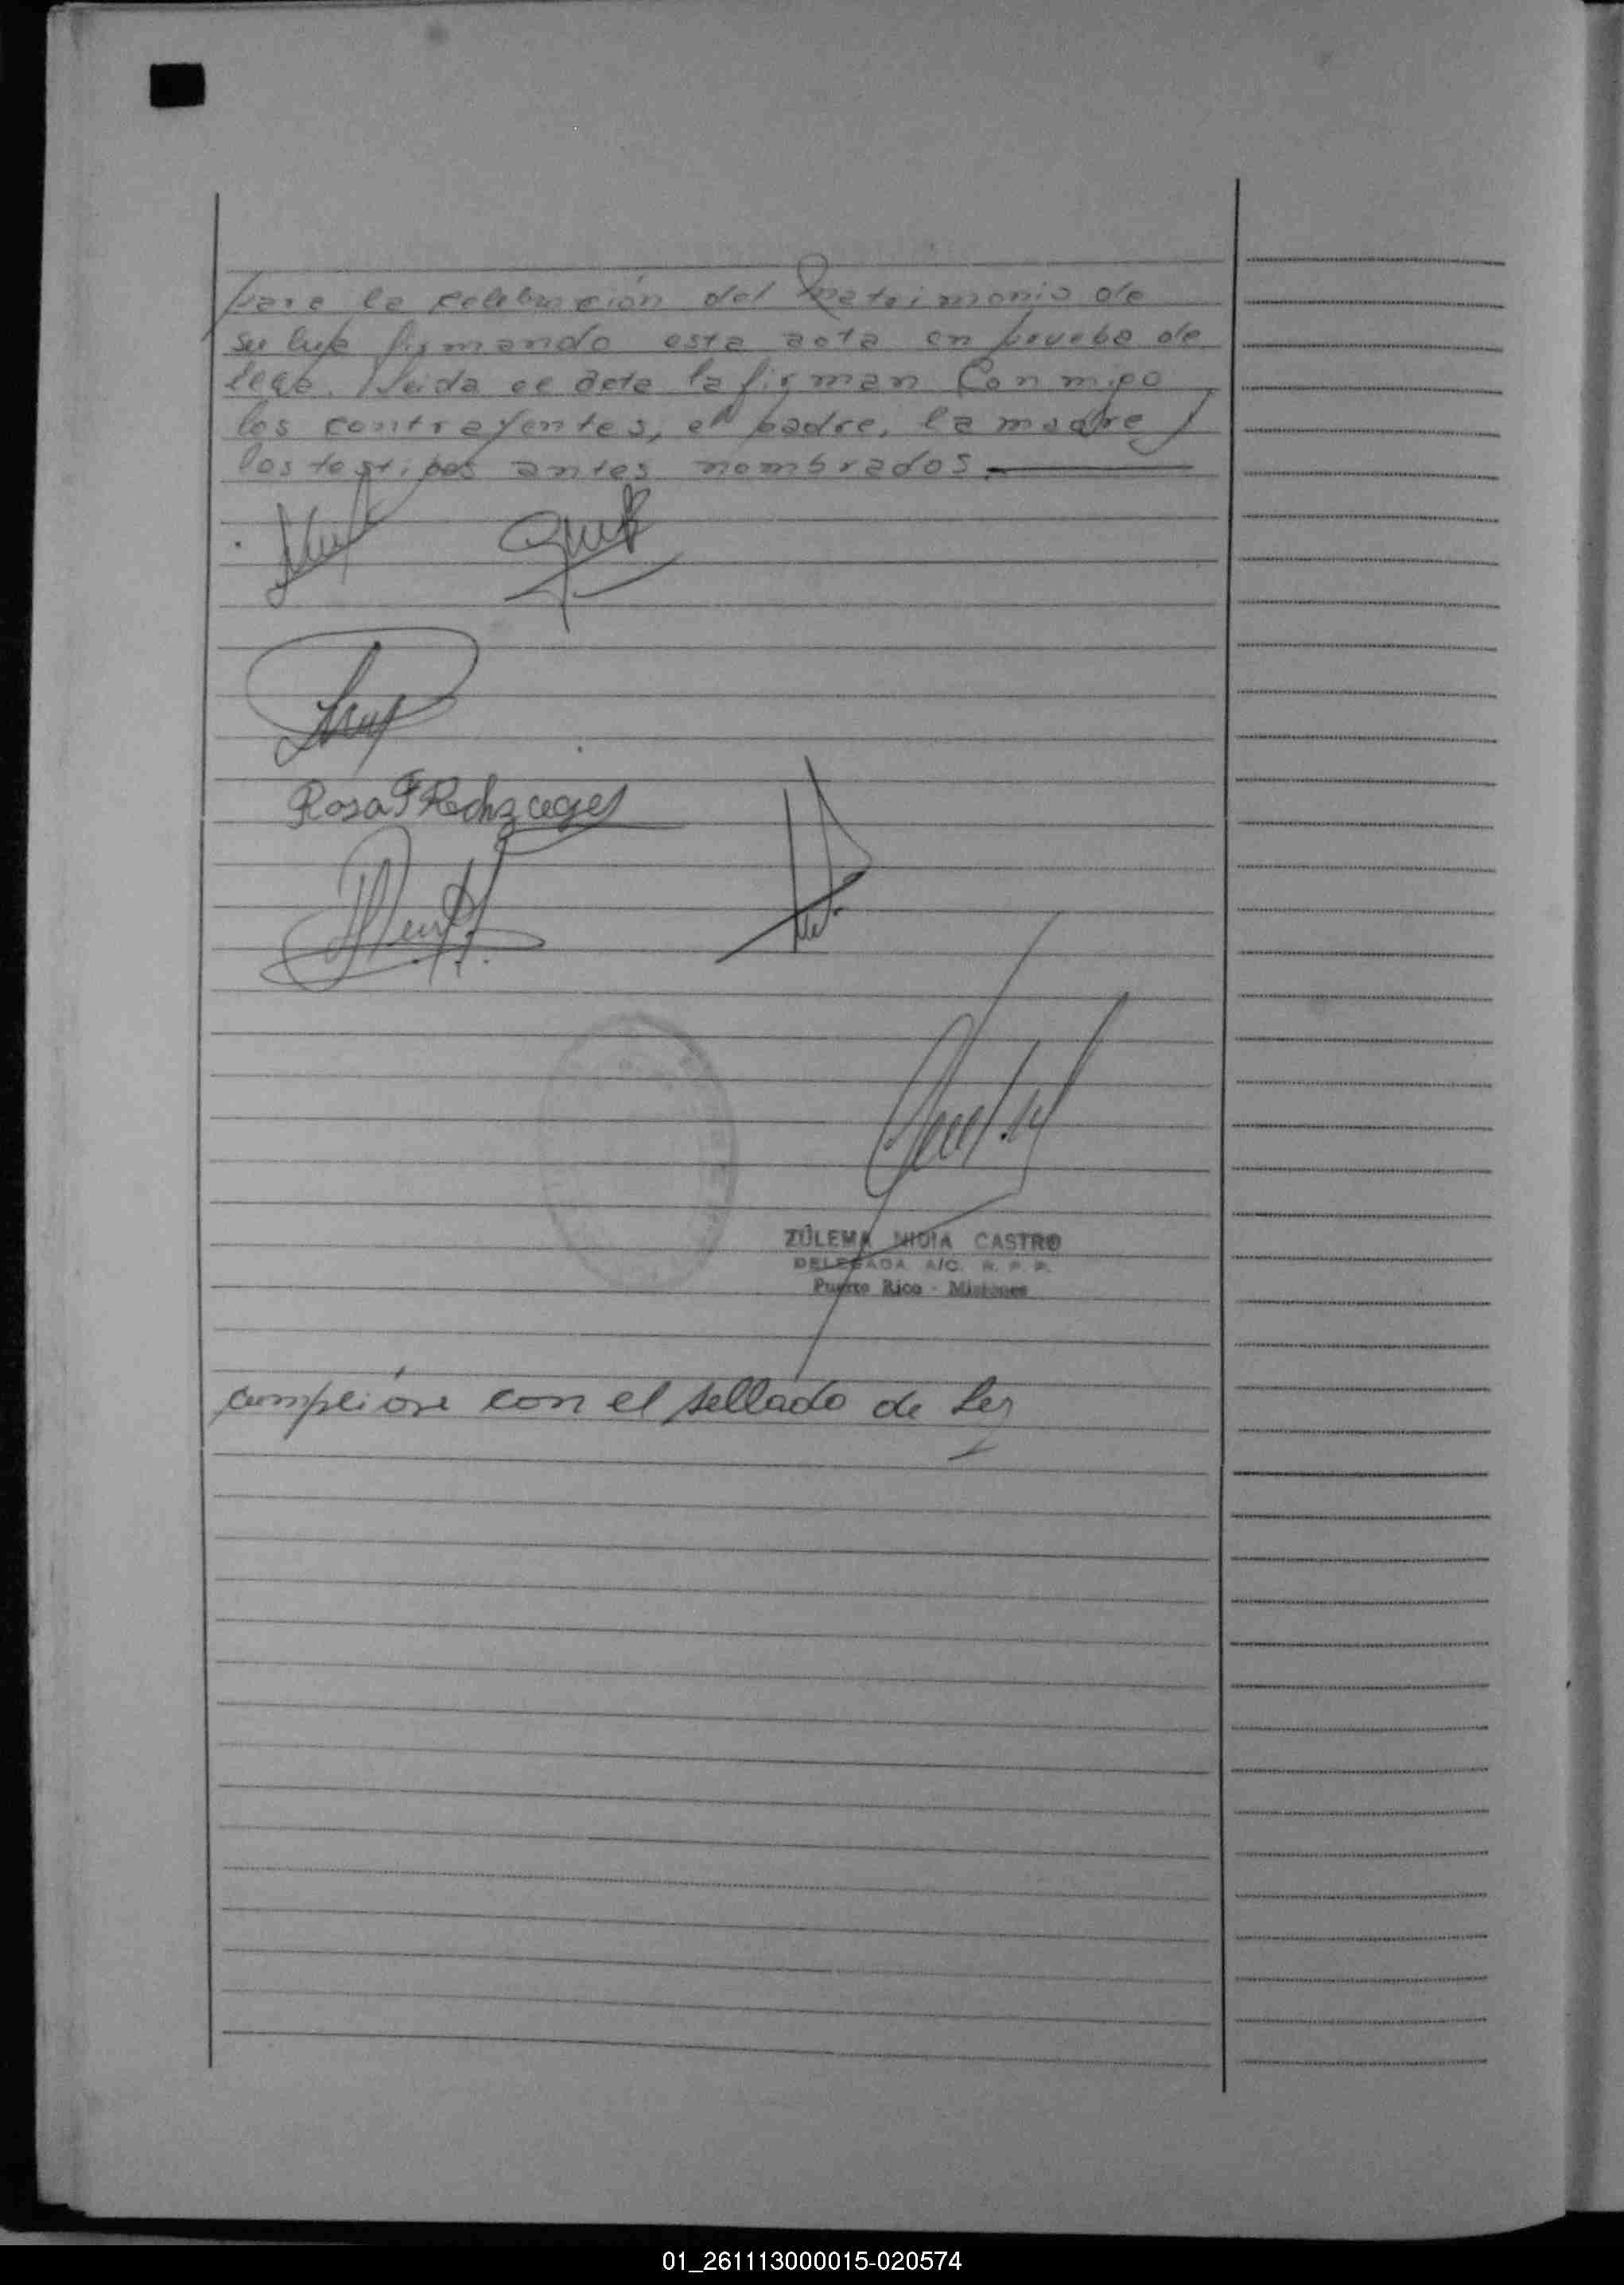 para la celebración del Matrimonio de
su hija firmando esta acta en prueba de
ello. Leida el acta la firman Conmigo
los contrayentes, el padre, la madre y
los testigos antes nombrados.
Rosa F
ZULEMA NIDIA CASTRO
DELEGADA A/C. R. P. P.
Puerto Rico - Misiones
cumplióse con el sellado de Ley
01_261113000015-020574